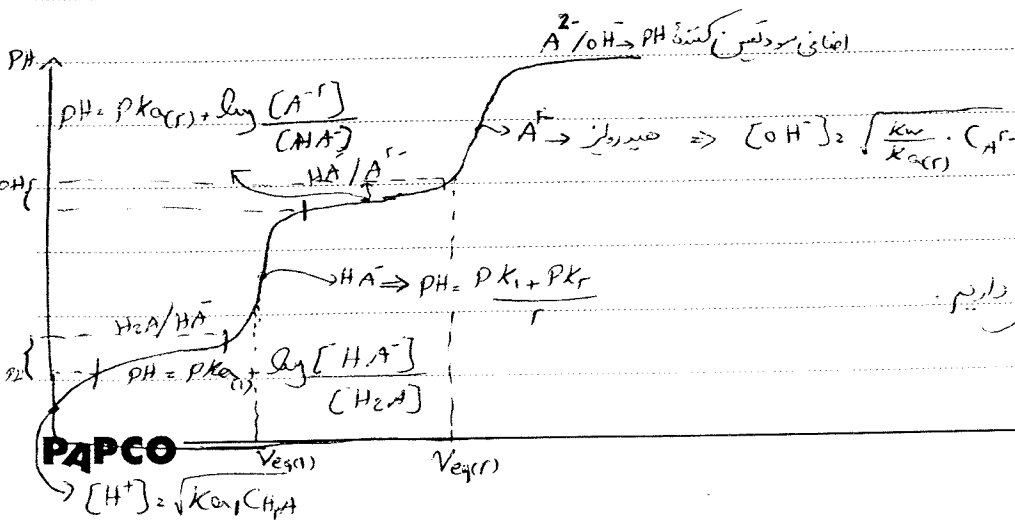 A²⁻/OH⁻ → PH اضافی
PH
PH = PKa(۲) + log [A⁻²] / [HA⁻]
A²⁻ → هیدرولیز ⇒ [OH⁻] = √(Kw/Ka(۲) · C A²⁻
HA⁻/A²⁻
HA⁻ ⇒ PH = PK₁ + PK₂ / ۲
داریم.
H₂A/HA⁻
PH = PKa(۱) + log [HA⁻] / [H₂A]
PAPCO
Veq(۱) Veq(۲)
[H⁺] = √Ka₁ C H₂A